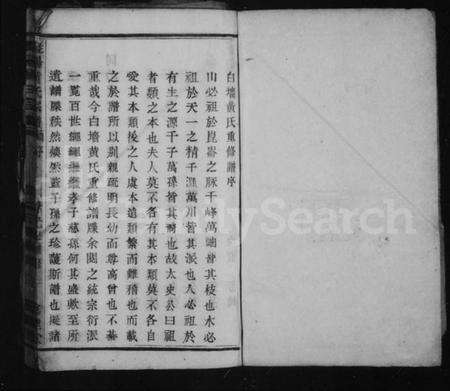 白墻黃氏重修譜序
山必祖於崑崙之脉千峰萬岫皆其枝也水必
祖於天一之精千溪萬川皆其派也人必祖於
有生之源千子萬孫皆其裔也故太史公曰祖
者類之本也夫人莫不各有其本類莫不各自
愛其本類後之人虞本遠類繁而難稽也而載
之於譜所以別親疏明長幼而尊高曾也不綦
重哉今白墻黃氏重修譜牒余閱之統宗衍派
一覽百世繩繩孝子慈孫何其盛歟至所
遺譜牒秩然燦然蓋子孫之珍藏斯譜也擬諸
MySearch